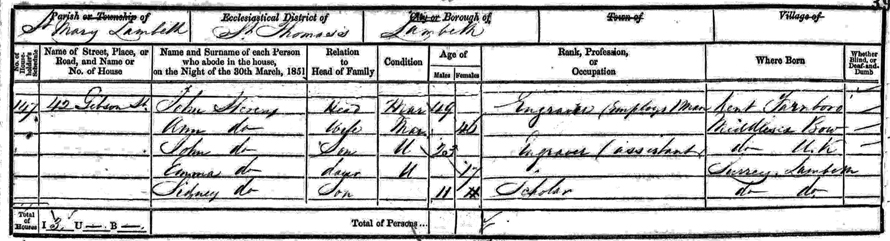 Parish or Township of Ecclesiastical District of City or Borough of Town of Village of
St Mary Lambeth St Thomas's Lambeth
No. of House-holder's Schedule Name of Street, Place, or Road, and Name or No. of House Name and Surname of each Person who abode in the house, on the Night of the 30th March, 1851 Relation to Head of Family Condition Age of Males Females Rank, Profession, or Occupation Where Born Whether Blind, or Deaf-and-Dumb
147 42 Gibson St John Stevens Head Mar 49 Engraver (Employs 1 Man Kent Farnboro
Ann do Wife Mar 46 Middlesex Bow
John do Son U 23 Engraver (assistant) do
Emma do daur U 17 Surrey Lambeth
Sidney do Son 11 Scholar do do
Total of Houses I 3 U — B — Total of Persons